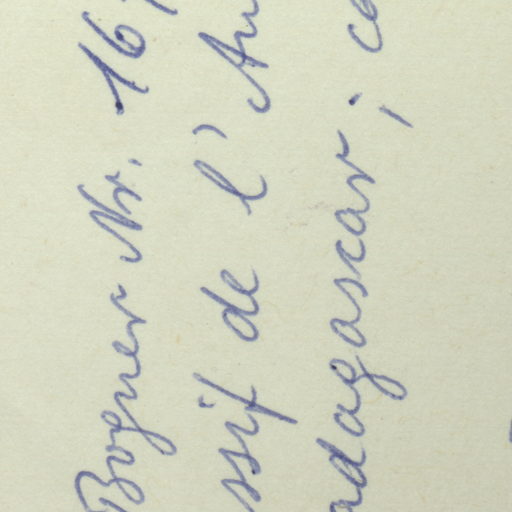 Bogner Nr. 167
ssif de l'An
adagascar; ce